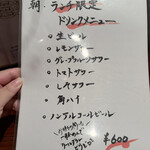 朝、ランチ限定
ドリンクメニュー
○生ビール
○レモンサワー
○グレープフルーツサワー
○トマトサワー
○レゲエサワー
○角ハイ
○ノンアルコールビール
¥600